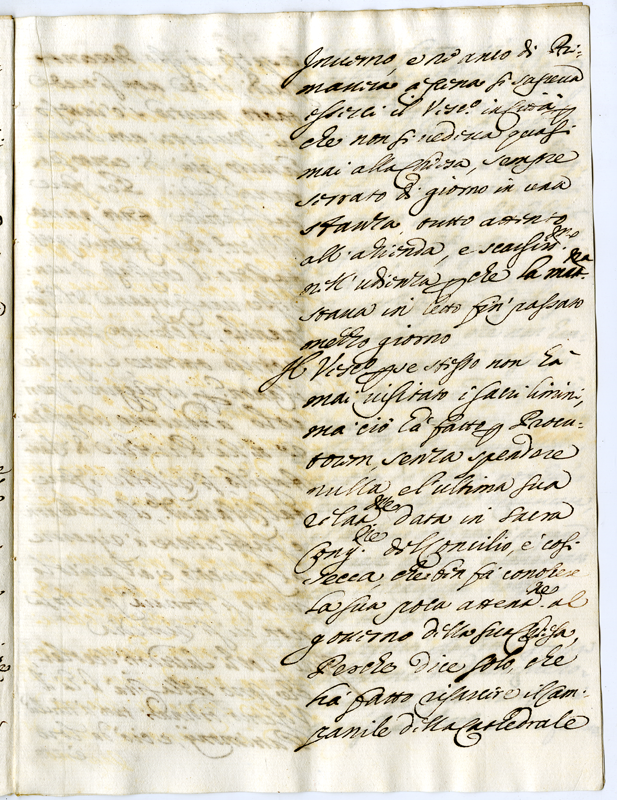 Inverno, e né anco di Pri-
mavera a pena si sapeva
esserci il Vesc.o in Città, p
che non si vedeva quasi
mai alla Chiesa, sempre
serrato di giorno in una
stanza, tutto attento
all'azienda, e scarsiss.mo
nell'udienza, p che la mat.na
stava in letto fin passato
mezzo giorno
Il Vesc.o p se stesso non hà
mai visitato i sacri limini,
ma ciò hà fatto p Procu-
torem, senza spendere
nulla, e l'ultima sua
relaz.ne data in Sacra
Cong.ne del Concilio, è così
secca, che ben fà conoscere
la sua poca attenz.ne al
governo della sua Chiesa,
Perche dice solo, che
hà fatto risarcire il Cam-
panile della Cathedrale